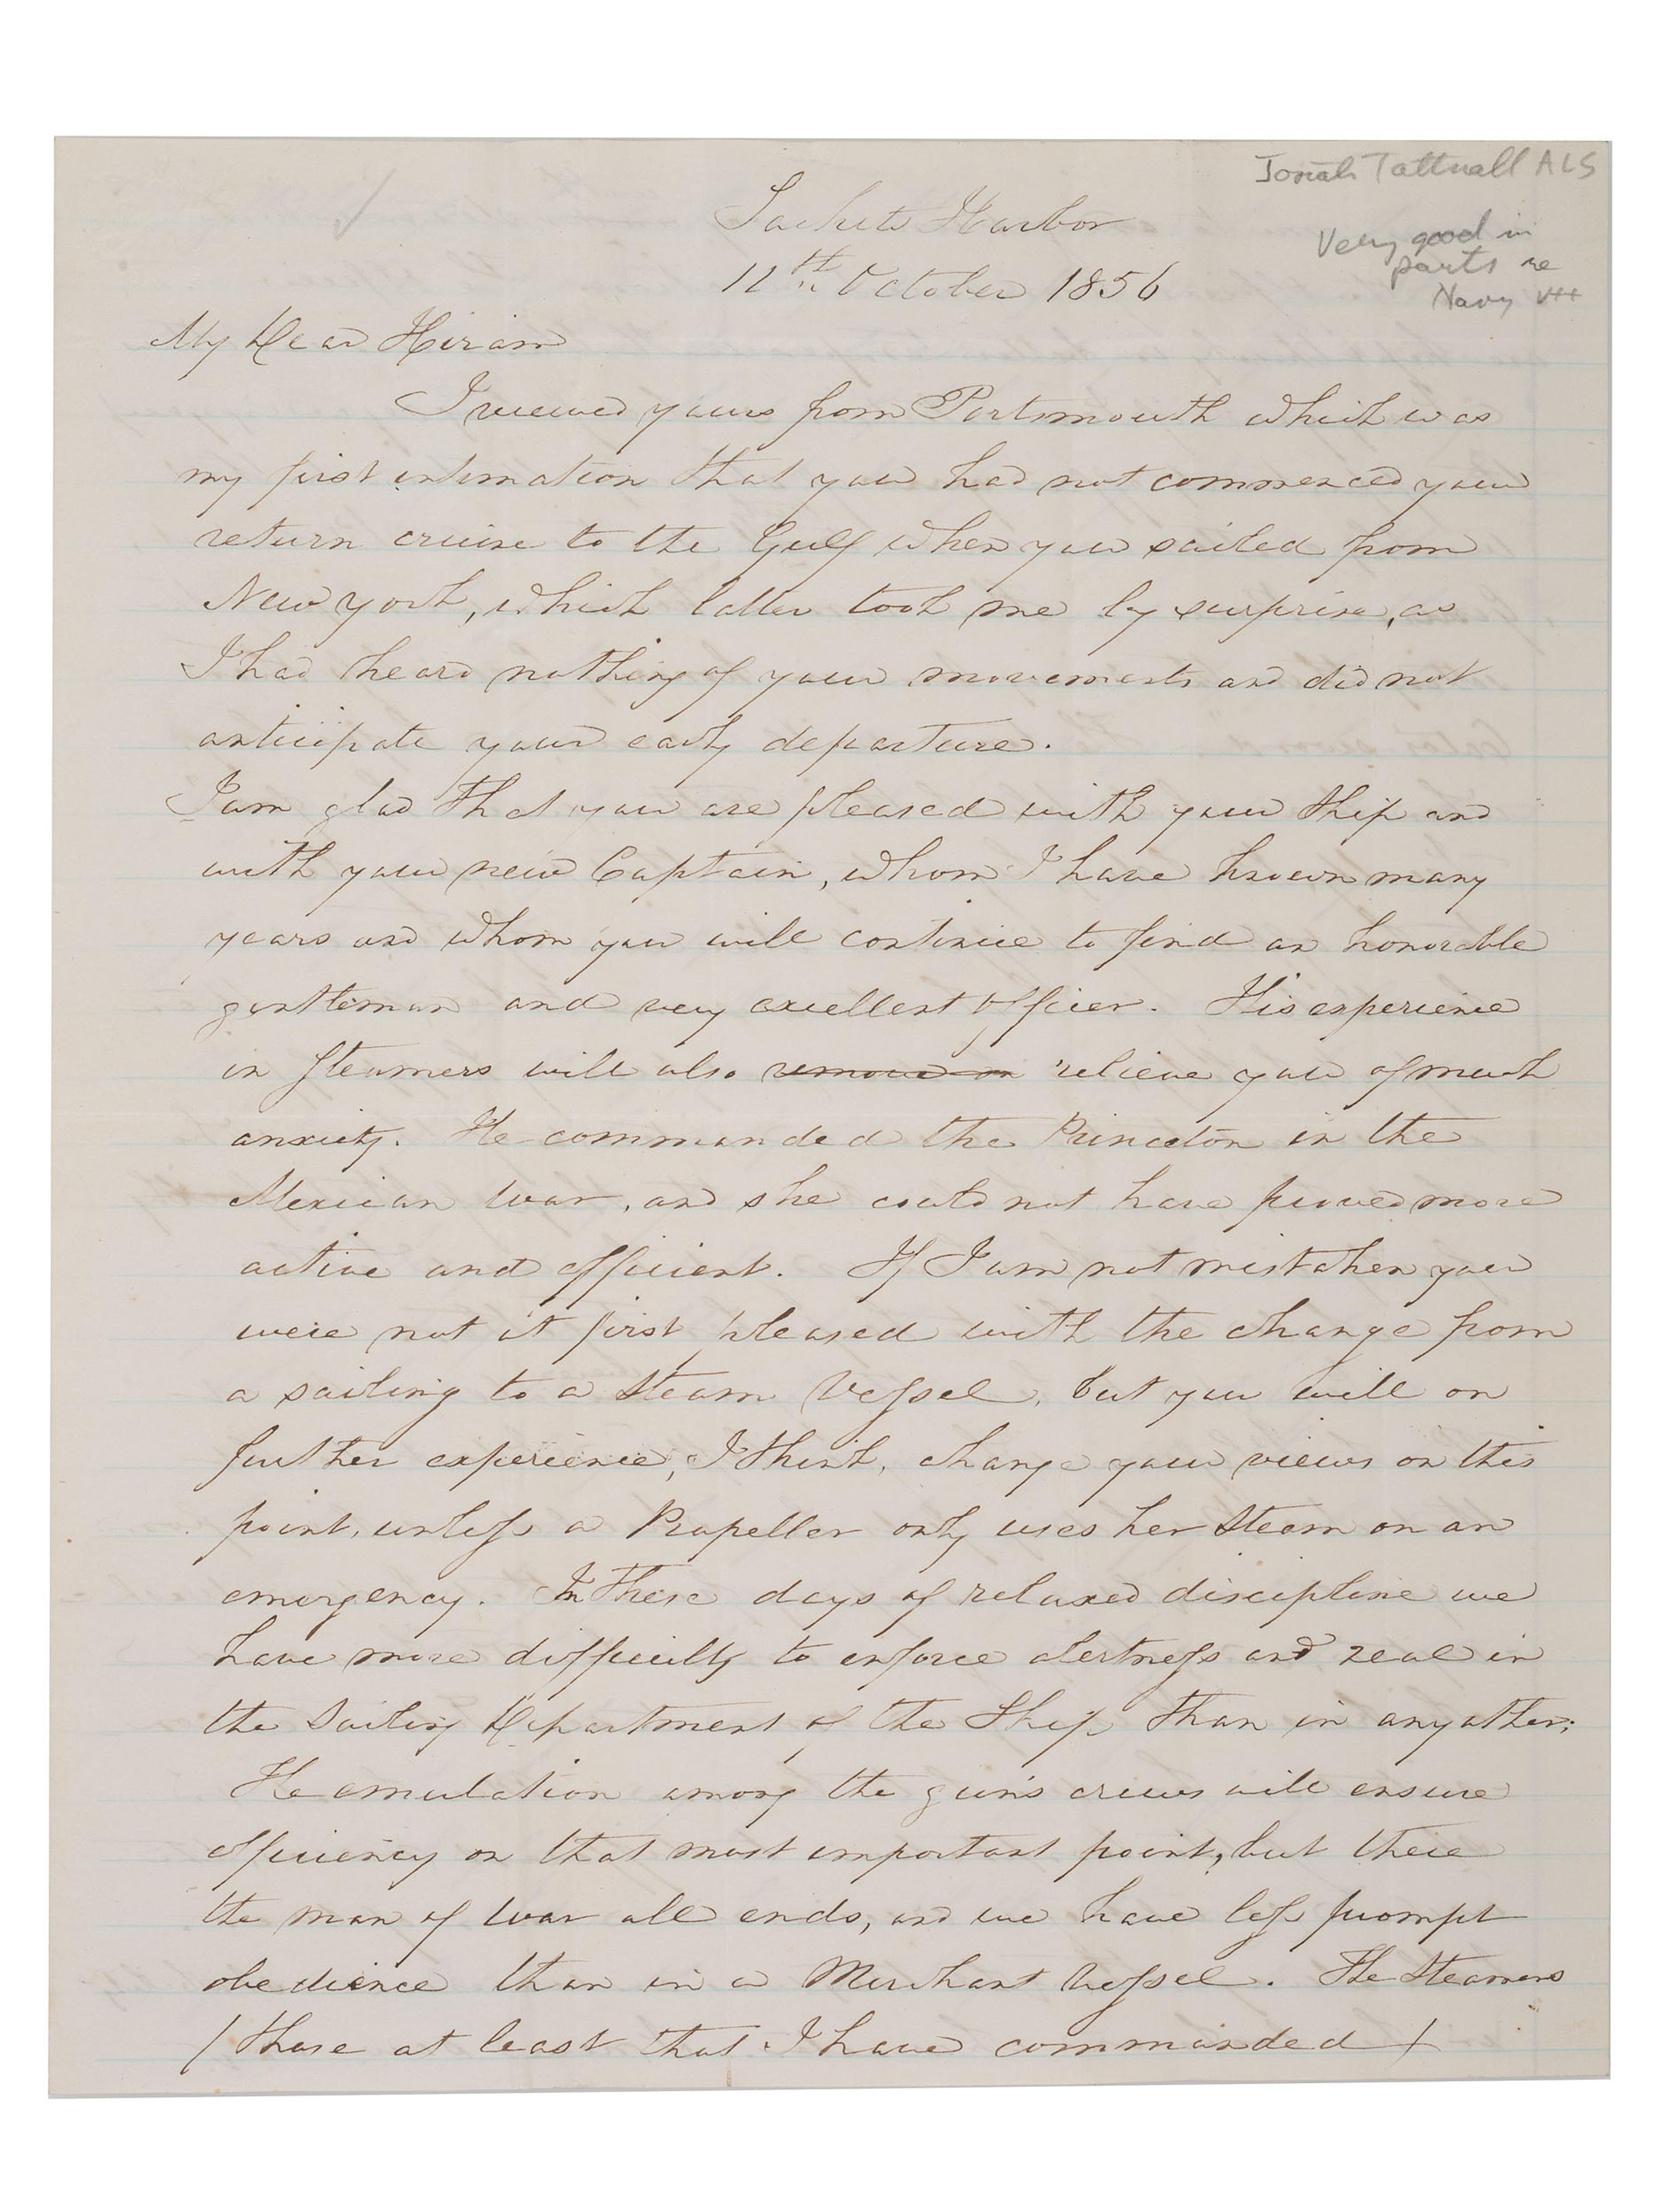 Josiah Tattnall ALS
Very good in
parts re
Navy
Sackets Harbor
11th October 1856
My Dear Hiram
I received yours from Portsmouth which was
my first intimation that you had not commenced your
return cruise to the Gulf when you sailed from
New York, which latter took me by surprise, as
I had heard nothing of your movements and did not
anticipate your early departure.
I am glad that you are pleased with your Ship and
with your new Captain, whom I have known many
years and whom you will continue to find an honorable
gentleman and very excellent officer. His experience
in Steamers will also remove relieve you of much
anxiety. He commanded the Princeton in the
Mexican War, and she could not have proved more
active and efficient. If I am not mistaken you
were not at first pleased with the change from
a sailing to a Steam Vessel, but you will on
further experience, I think, change your views on this
point, unless a Propeller only uses her Steam on an
emergency. In these days of relaxed discipline we
have more difficulty to enforce alertness and zeal in
the Sailing Department of the Ship than in any other;
The emulation among the guns crews will ensure
efficiency on that most important point, but there
the man of War all ends, and we have less prompt
obedience than in a Merchant Vessel. The Steamers
(those at least that I have commanded)